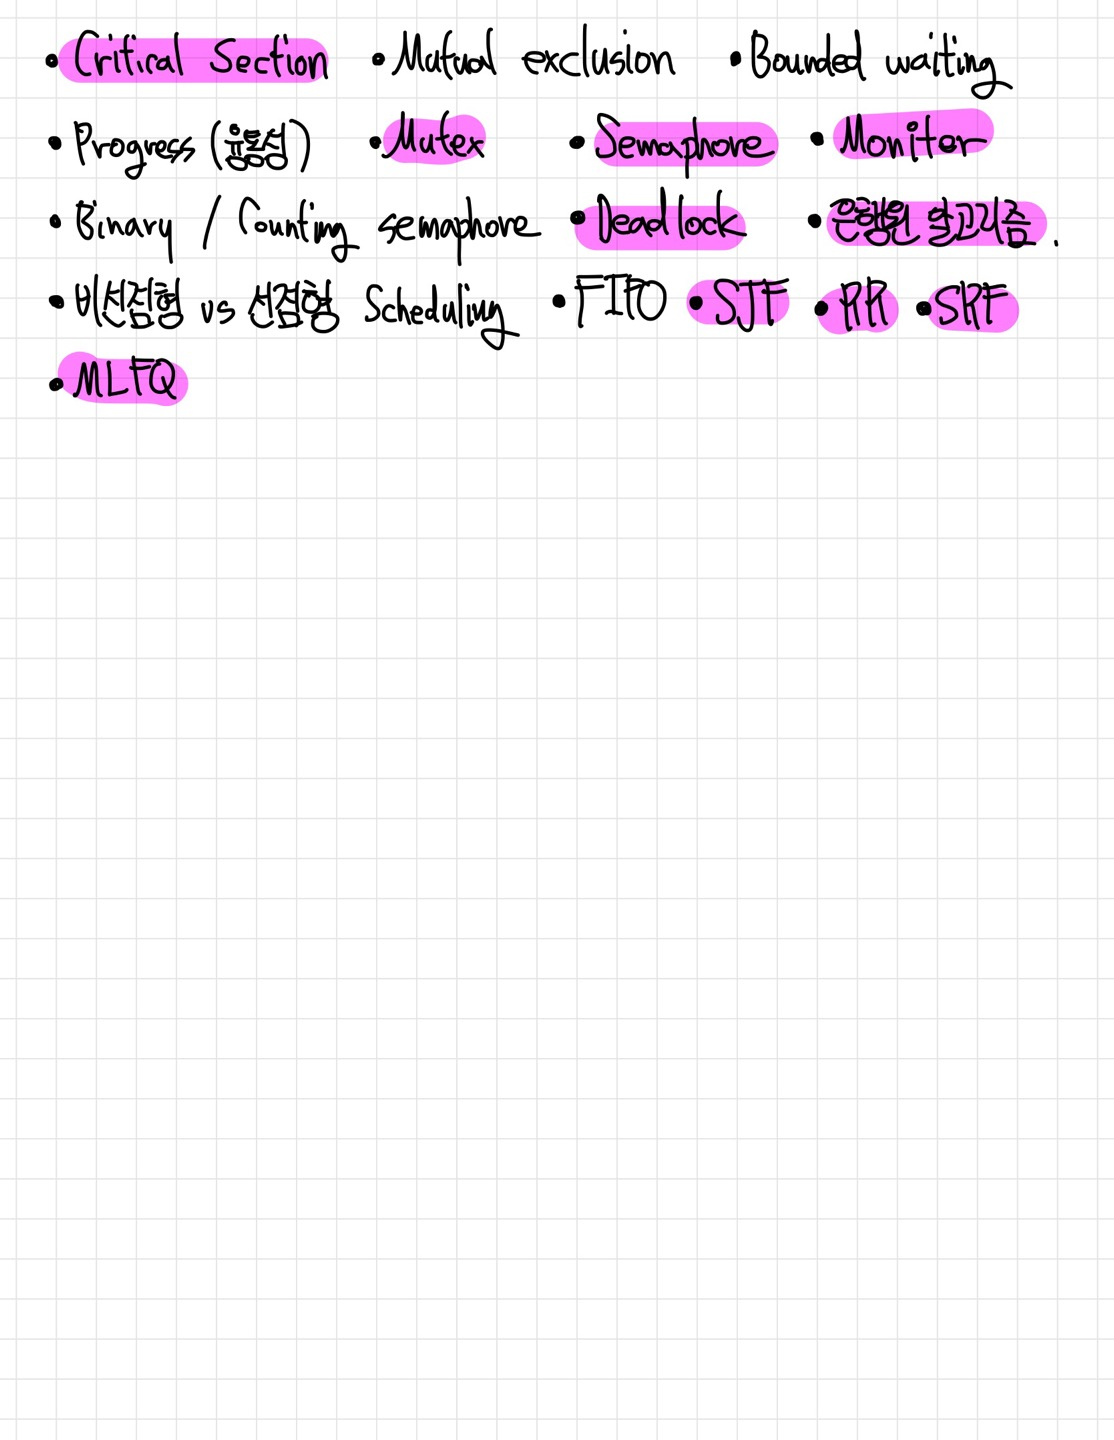 • Critical Section • Mutual exclusion • Bounded waiting
• Progress (융통성) • Mutex • Semaphore • Moniter
• Binary / Counting semaphore • Deadlock •은행원 알고리즘.
•비선점형 vs 선점형 Scheduling • FIFO • SJF • RR • SRF
• MLFQ